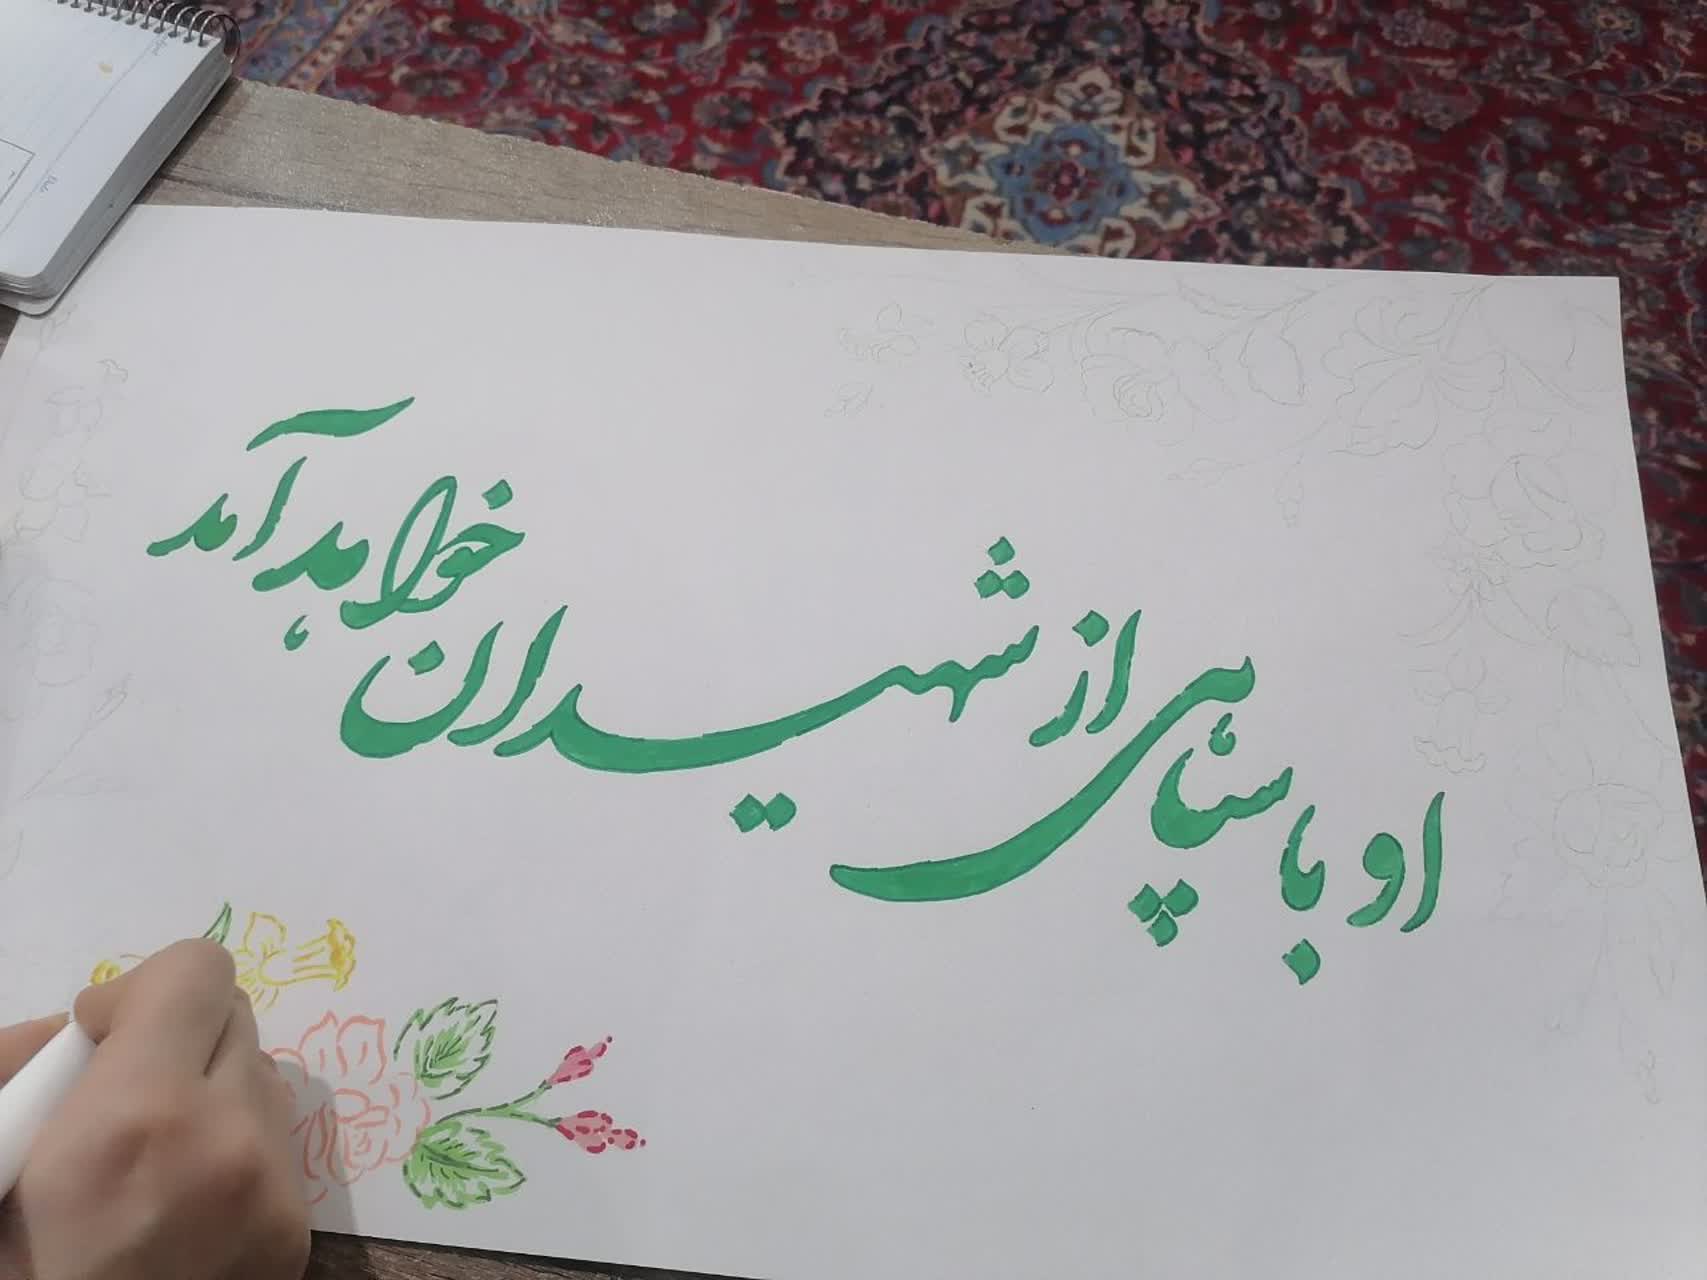 او با سپاهی از شهیدان خواهد آمد